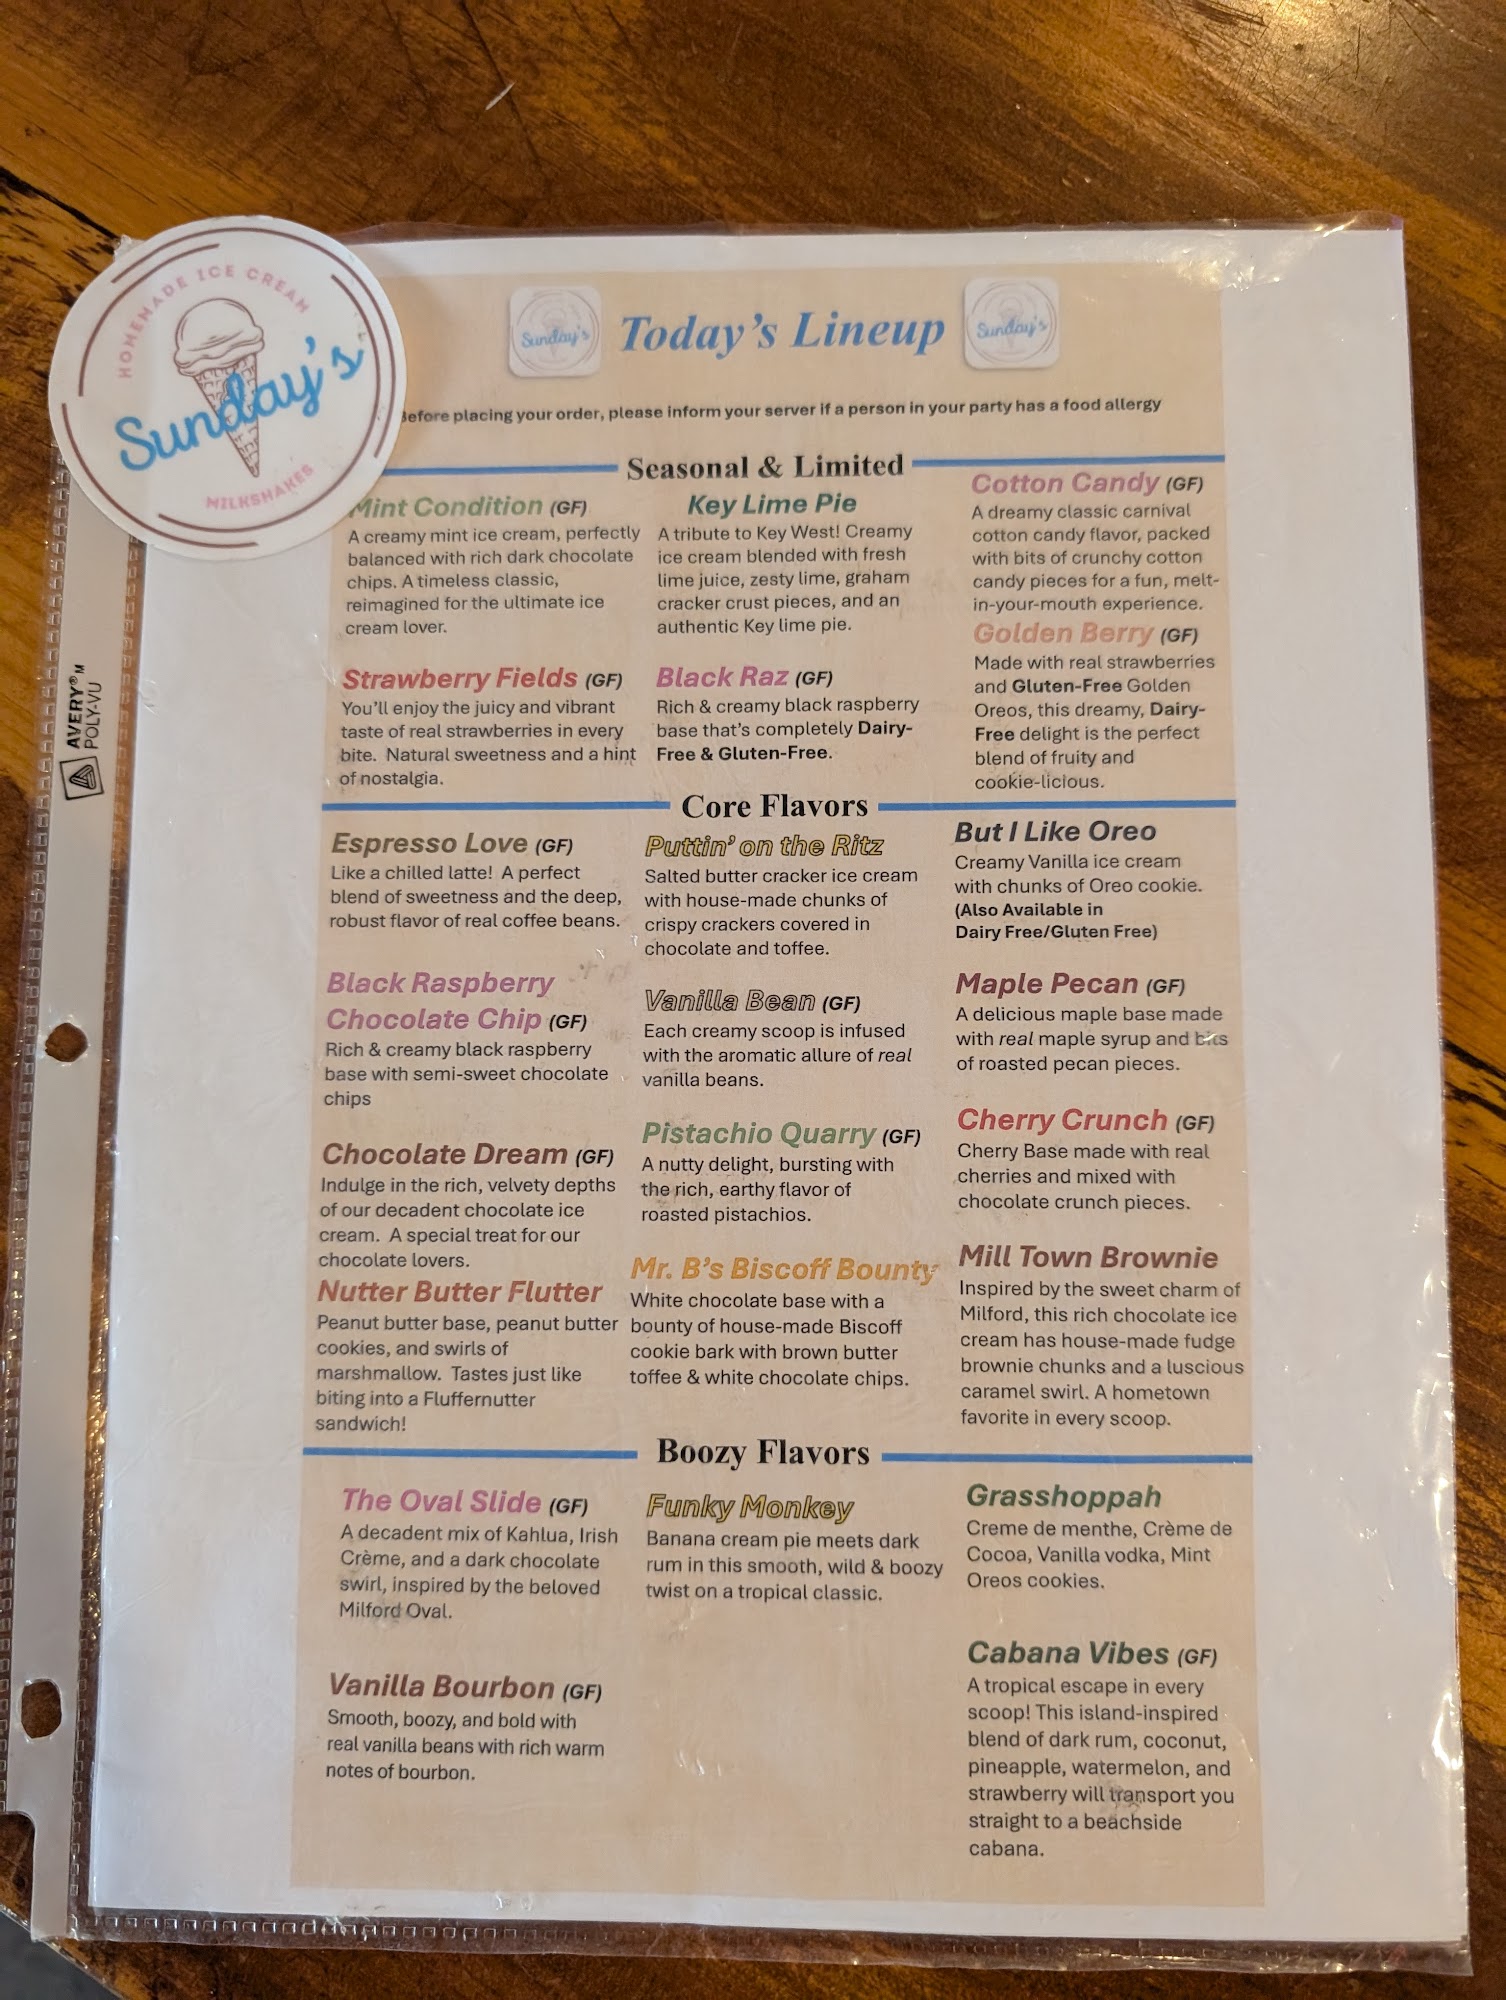 HOMEMADE ICE CREAM
Sunday's
MILKSHAKES
AVERY® M
POLY-VU
Sunday's
Today's Lineup
Sunday's
Before placing your order, please inform your server if a person in your party has a food allergy
Seasonal & Limited
Mint Condition (GF)
A creamy mint ice cream, perfectly
balanced with rich dark chocolate
chips. A timeless classic,
reimagined for the ultimate ice
cream lover.
Strawberry Fields (GF)
You'll enjoy the juicy and vibrant
taste of real strawberries in every
bite. Natural sweetness and a hint
of nostalgia.
Key Lime Pie
A tribute to Key West! Creamy
ice cream blended with fresh
lime juice, zesty lime, graham
cracker crust pieces, and an
authentic Key lime pie.
Black Raz (GF)
Rich & creamy black raspberry
base that's completely Dairy-
Free & Gluten-Free.
Cotton Candy (GF)
A dreamy classic carnival
cotton candy flavor, packed
with bits of crunchy cotton
candy pieces for a fun, melt-
in-your-mouth experience.
Golden Berry (GF)
Made with real strawberries
and Gluten-Free Golden
Oreos, this dreamy, Dairy-
Free delight is the perfect
blend of fruity and
cookie-licious.
Core Flavors
Espresso Love (GF)
Like a chilled latte! A perfect
blend of sweetness and the deep,
robust flavor of real coffee beans.
Black Raspberry
Chocolate Chip (GF)
Rich & creamy black raspberry
base with semi-sweet chocolate
chips
Chocolate Dream (GF)
Indulge in the rich, velvety depths
of our decadent chocolate ice
cream. A special treat for our
chocolate lovers.
Nutter Butter Flutter
Peanut butter base, peanut butter
cookies, and swirls of
marshmallow. Tastes just like
biting into a Fluffernutter
sandwich!
Puttin' on the Ritz
Salted butter cracker ice cream
with house-made chunks of
crispy crackers covered in
chocolate and toffee.
Vanilla Bean (GF)
Each creamy scoop is infused
with the aromatic allure of real
vanilla beans.
Pistachio Quarry (GF)
A nutty delight, bursting with
the rich, earthy flavor of
roasted pistachios.
Mr. B's Biscoff Bounty
White chocolate base with a
bounty of house-made Biscoff
cookie bark with brown butter
toffee & white chocolate chips.
But I Like Oreo
Creamy Vanilla ice cream
with chunks of Oreo cookie.
(Also Available in
Dairy Free/Gluten Free)
Maple Pecan (GF)
A delicious maple base made
with real maple syrup and bits
of roasted pecan pieces.
Cherry Crunch (GF)
Cherry Base made with real
cherries and mixed with
chocolate crunch pieces.
Mill Town Brownie
Inspired by the sweet charm of
Milford, this rich chocolate ice
cream has house-made fudge
brownie chunks and a luscious
caramel swirl. A hometown
favorite in every scoop.
Boozy Flavors
The Oval Slide (GF)
A decadent mix of Kahlua, Irish
Crème, and a dark chocolate
swirl, inspired by the beloved
Milford Oval.
Vanilla Bourbon (GF)
Smooth, boozy, and bold with
real vanilla beans with rich warm
notes of bourbon.
Funky Monkey
Banana cream pie meets dark
rum in this smooth, wild & boozy
twist on a tropical classic.
Grasshoppah
Creme de menthe, Crème de
Cocoa, Vanilla vodka, Mint
Oreos cookies.
Cabana Vibes (GF)
A tropical escape in every
scoop! This island-inspired
blend of dark rum, coconut,
pineapple, watermelon, and
strawberry will transport you
straight to a beachside
cabana.